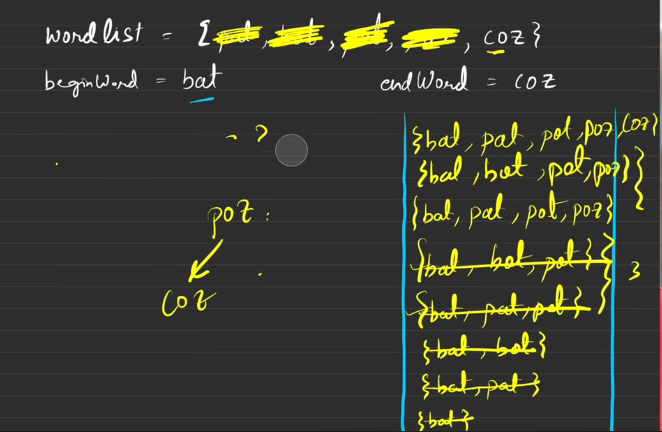 wordlist = { , , , , coz}
beginWord = bat endWord = coz
- ?
{bat, pat, pot, poz, coz}
{bat, bot, pot, poz}
poz :
{bat, pat, pot, poz}
{bat, bot, pot}
3
coz
{bat, pat, pot}
{bat, bot}
{bat, pat}
{bat}